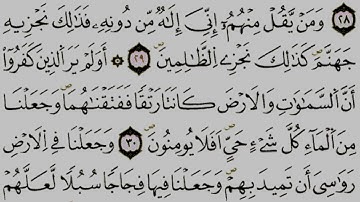 ﴿٢٨﴾ وَمَنْ يَّقُلْ مِنْهُمْ اِنِّىْٓ اِلٰهٌ مِّنْ دُوْنِهٖ فَذٰلِكَ نَجْزِيْهِ
جَهَنَّمَ كَذٰلِكَ نَجْزِى الظّٰلِمِيْنَ ﴿٢٩﴾ ۞ اَوَلَمْ يَرَ الَّذِيْنَ كَفَرُوْٓا
اَنَّ السَّمٰوٰتِ وَالْاَرْضَ كَانَتَا رَتْقًا فَفَتَقْنٰهُمَا وَجَعَلْنَا
مِنَ الْمَآءِ كُلَّ شَىْءٍ حَيٍّ اَفَلَا يُؤْمِنُوْنَ ﴿٣٠﴾ وَجَعَلْنَا فِى الْاَرْضِ
رَوَاسِىَ اَنْ تَمِيْدَ بِهِمْ وَجَعَلْنَا فِيْهَا فِجَاجًا سُبُلًا لَّعَلَّهُمْ